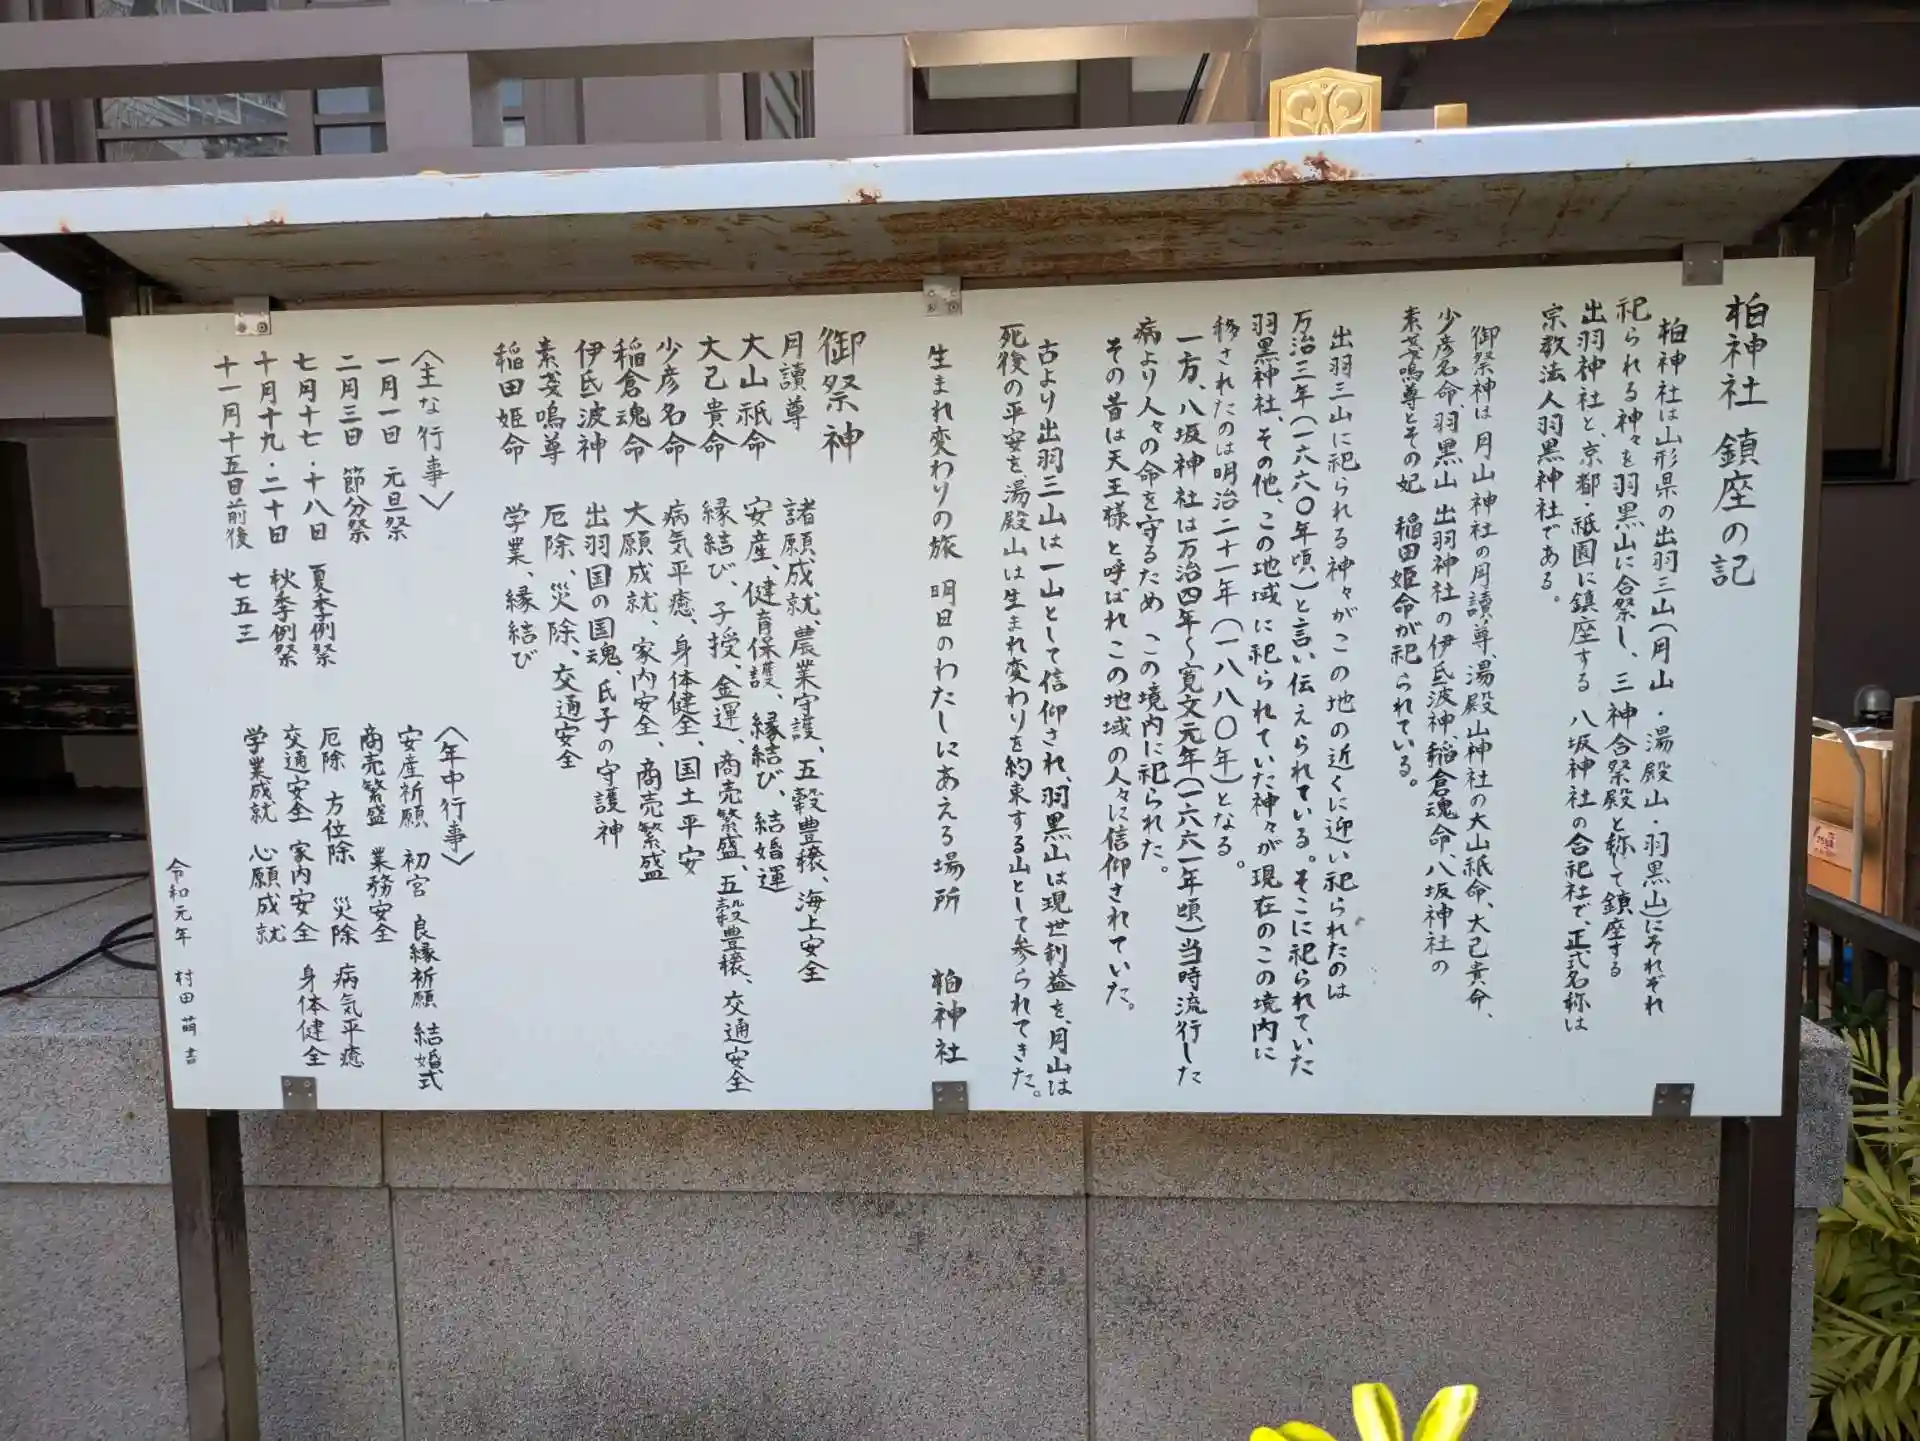 柏神社 鎮座の記
柏神社は山形県の出羽三山(月山・湯殿山・羽黒山)にそれぞれ
祀られる神々を羽黒山に合祭し、三神合祭殿と称して鎮座する
出羽神社と、京都・祇園に鎮座する 八坂神社の合祀社で、正式名称は
宗教法人羽黒神社である。
御祭神は月山神社の月讀尊、湯殿山神社の大山祇命、大己貴命、
少彦名命、羽黒山 出羽神社の伊氐波神、稲倉魂命、八坂神社の
素戔嗚尊とその妃 稲田姫命が祀られている。
出羽三山に祀られる神々がこの地の近くに迎い祀られたのは
万治三年(一六六〇年頃)と言い伝えられている。そこに祀られていた
羽黒神社、その他、この地域に祀られていた神々が現在のこの境内に
移されたのは明治二十一年(一八八〇年)となる。
一方、八坂神社は万治四年〜寛文元年(一六六一年頃)当時流行した
病より人々の命を守るため この境内に祀られた。
その昔は天王様と呼ばれこの地域の人々に信仰されていた。
古より出羽三山は一山として信仰され、羽黒山は現世利益を、月山は
死後の平安を湯殿山は生まれ変わりを約束する山として参られてきた。
生まれ変わりの旅 明日のわたしにあえる場所 柏神社
御祭神
月讀尊 諸願成就、農業守護、五穀豊穣、海上安全
大山祇命 安産、健育保護、縁結び、結婚運
大己貴命 縁結び、子授、金運、商売繁盛、五穀豊穣、交通安全
少彦名命 病気平癒、身体健全、国土平安
稲倉魂命 大願成就、家内安全、商売繁盛
伊氐波神 出羽国の国魂、氏子の守護神
素戔嗚尊 厄除、災除、交通安全
稲田姫命 学業、縁結び
〈主な行事〉
一月一日 元旦祭
二月三日 節分祭
七月十七・十八日 夏季例祭
十月十九・二十日 秋季例祭
十一月十五日前後 七五三
〈年中行事〉
安産祈願 初宮 良縁祈願 結婚式
商売繁盛 業務安全
厄除 方位除 災除 病気平癒
交通安全 家内安全 身体健全
学業成就 心願成就
令和元年 村田 萠吉